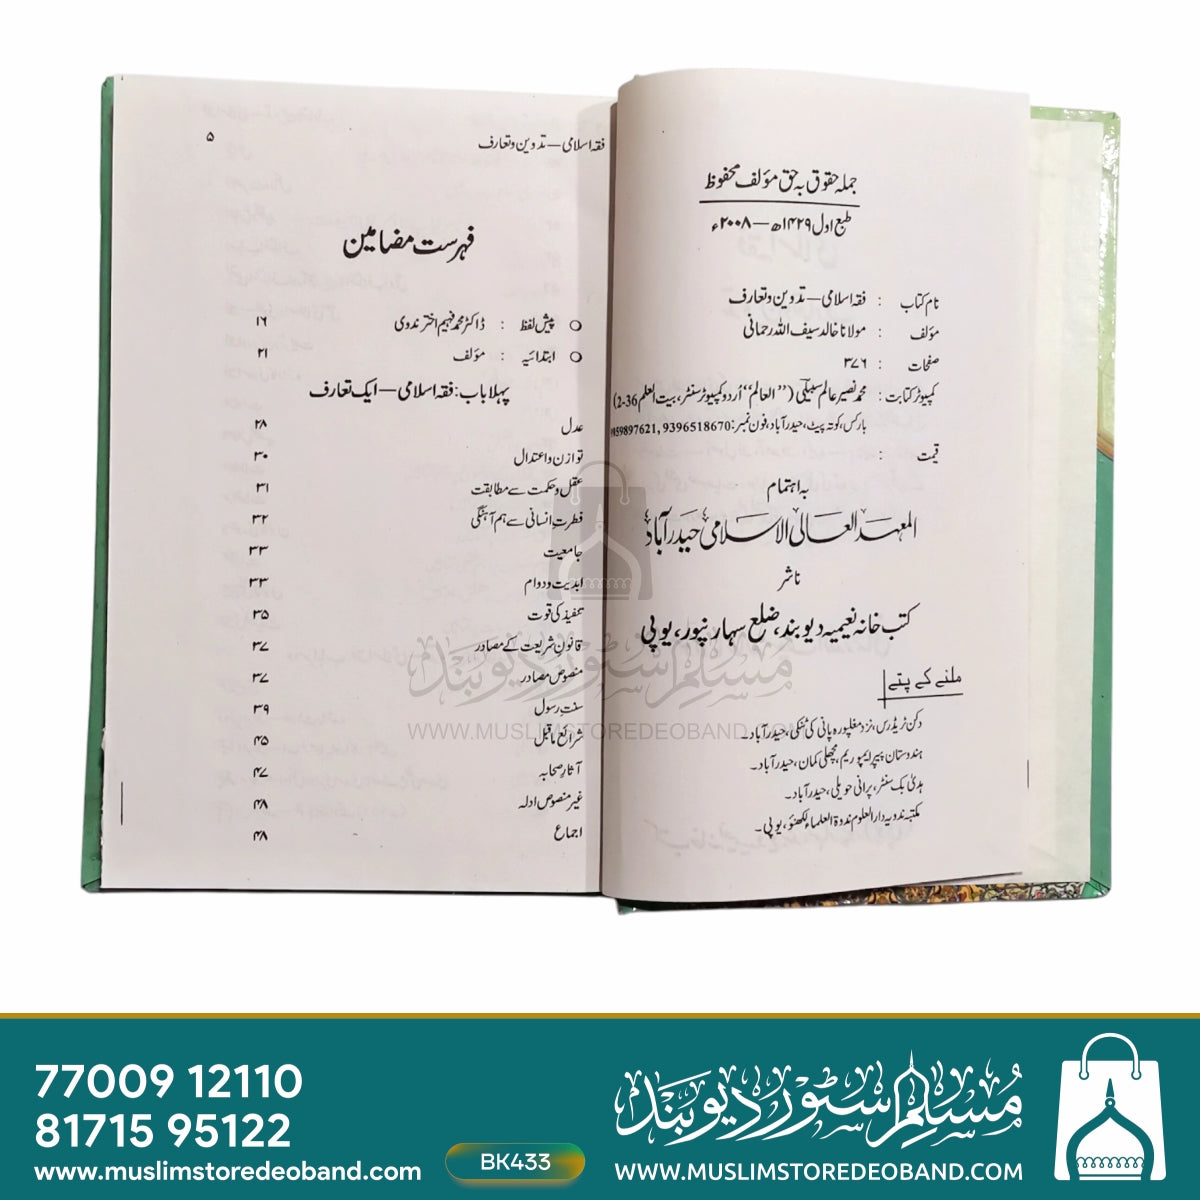 جملہ حقوق بہ حق مؤلف محفوظ
طبع اول ۱۴۲۹ھ — ۲۰۰۸ء
نام کتاب : فقہ اسلامی — تدوین و تعارف
مؤلف : مولانا خالد سیف اللہ رحمانی
صفحات : ۳۷۶
کمپیوٹر کتابت : محمد نصیر عالم سبیلی (”العالم“ اُردو کمپیوٹر سنٹر، بیت العلم 36-2)
بارکس، کوتہ پیٹ، حیدرآباد، فون نمبر: 9396518670 ,9959897621
قیمت :
بہ اہتمام
المعہد العالی الاسلامی حیدرآباد
ناشر
کتب خانہ نعیمیہ دیوبند، ضلع سہارنپور، یوپی
ملنے کے پتے
دکن ٹریڈرس، نزد مغلپورہ پانی کی ٹنکی، حیدرآباد۔
ہندوستان پیپر ایمپوریم، مچھلی کمان، حیدرآباد۔
ہدیٰ بک سنٹر، پرانی حویلی، حیدرآباد۔
مکتبہ ندویہ دارالعلوم ندوۃ العلماء لکھنؤ، یوپی۔
فقہ اسلامی — تدوین و تعارف ۵
فہرست مضامین
○ پیش لفظ : ڈاکٹر محمد فہیم اختر ندوی ۱۶
○ ابتدائیہ : مؤلف ۲۱
پہلا باب : فقہ اسلامی — ایک تعارف
عدل ۲۸
توازن و اعتدال ۳۰
عقل و حکمت سے مطابقت ۳۱
فطرتِ انسانی سے ہم آہنگی ۳۲
جامعیت ۳۳
ابدیت و دوام ۳۳
تنفیذ کی قوت ۳۵
قانونِ شریعت کے مصادر ۳۷
منصوص مصادر ۳۷
سنت رسول ۳۹
شرائع ماقبل ۴۵
آثارِ صحابہ ۴۷
غیر منصوص ادلہ ۴۸
اجماع ۴۸
مسلم سٹور دیوبند
WWW.MUSLIMSTOREDEOBAND.COM
77009 12110
81715 95122
www.muslimstoredeoband.com
BK433
مسلم سٹور دیوبند
WWW.MUSLIMSTOREDEOBAND.COM